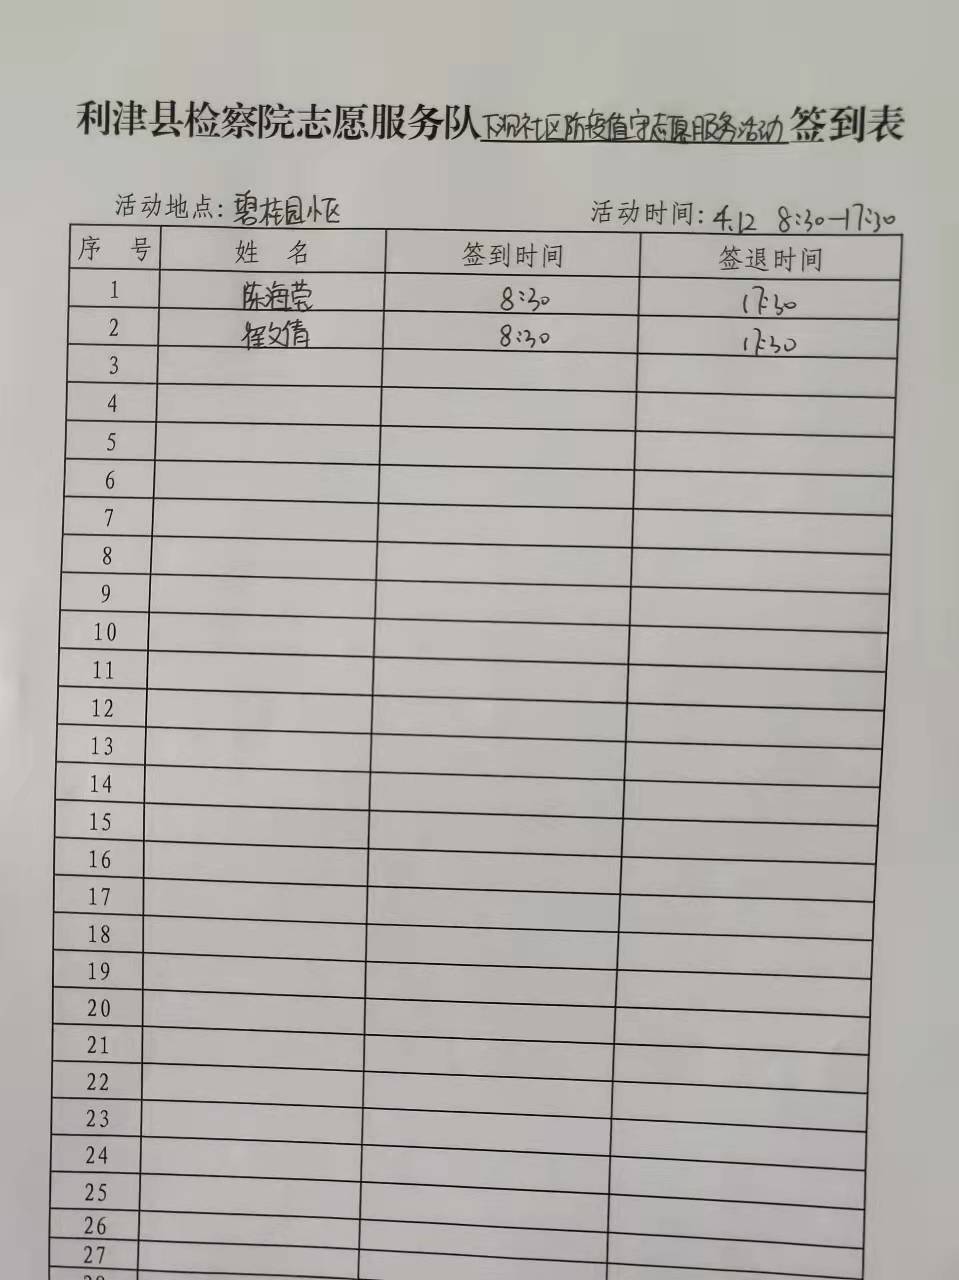 利津县检察院志愿服务队下泥社区防疫值守志愿服务活动签到表
活动地点:碧桂园小区 活动时间:4.12 8:30-17:30
序 号 姓 名 签到时间 签退时间
1 陈海莹 8:30 17:30
2 崔文倩 8:30 17:30
3
4
5
6
7
8
9
10
11
12
13
14
15
16
17
18
19
20
21
22
23
24
25
26
27
28